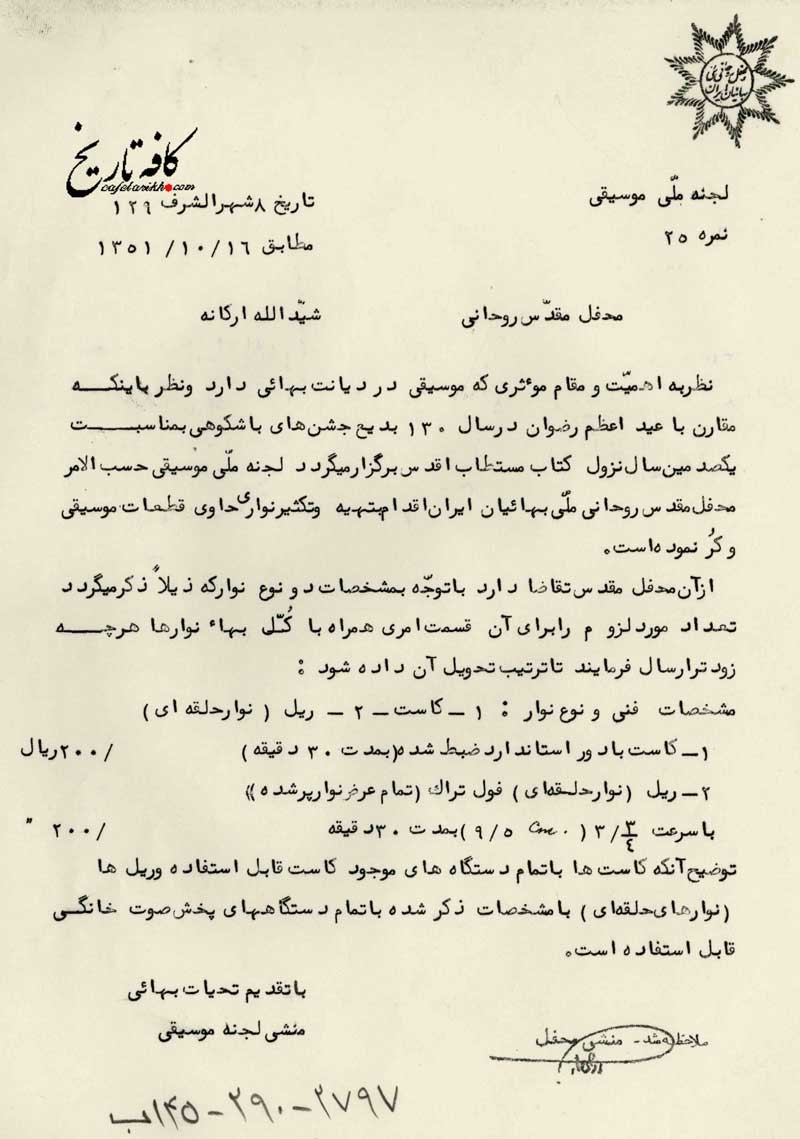 محفل
بهائیان ایران
کافه تاریخ
cafetarikh.com
لجنه ملّی موسیقی
تاریخ ۸ شهرالشرف ۱۲۹
نمره ۲۵
مطابق ۱۳۵۱/۱۰/۱۶
محفل مقدّس روحانی شیّدالله ارکانه
نظربه اهمیّت و مقام موٴثری که موسیقی در دیانت بهائی دارد ونظر باینکـــه
مقارن با عید اعظم رضوان درسال ۱۳۰ بدیع جشن‌های باشکوهی بمناسبـــت
یکصدمین سال نزول کتاب مستطاب اقدس برگزارمیگردد لجنه ملّی موسیقی حسب الامر
محفل مقدس روحانی ملّی بهائیان ایران اقدام بتهیه وتکثیر نواری حاوی قطعات موسیقی
و کُر نموده است.
ازآن محفل مقدس تقاضا دارد باتوجّه بمشخصات دو نوع نوارکه ذیلاً ذکرمیگردد
تعداد مورد لزوم رابرای آن قسمت امری همراه با کُلّی بهاء نوارها هرچـــه
زودترارسال فرمایند تاترتیب تحویل آن داده شود :
مشخصات فنی و نوع نوار : ۱ ـ کاست ـ ۲ ـ ریل ( نوارحلقه ای )
۱ـ کاست بادور استاندارد ضبط شده (بمدت ۳۰ دقیقه ) ۲۰۰/ ریال
۲ـ ریل (نوارحلقه‌ای ) فول تراک (تمام عرض نوارپرشده ))
باسرعت ۳/ ۳/۴ ( ۹/۵ cm. )بمدت ۳۰دقیقه ۲۰۰/ "
توضیح آنکه کاست ها باتمام دستگاه های موجود کاست قابل استفاده وریل ها
(نوارهای حلقه‌ای ) بامشخصات ذکر شده باتمام دستگاههای پخش صوت خانگـی
قابل استفاده است.
باتقدیم تحیات بهائی
منشی لجنه موسیقی
ملاحظه شد ـ منشی محفل
۱۴۵-۲۹۰-۲۷۹۷ب